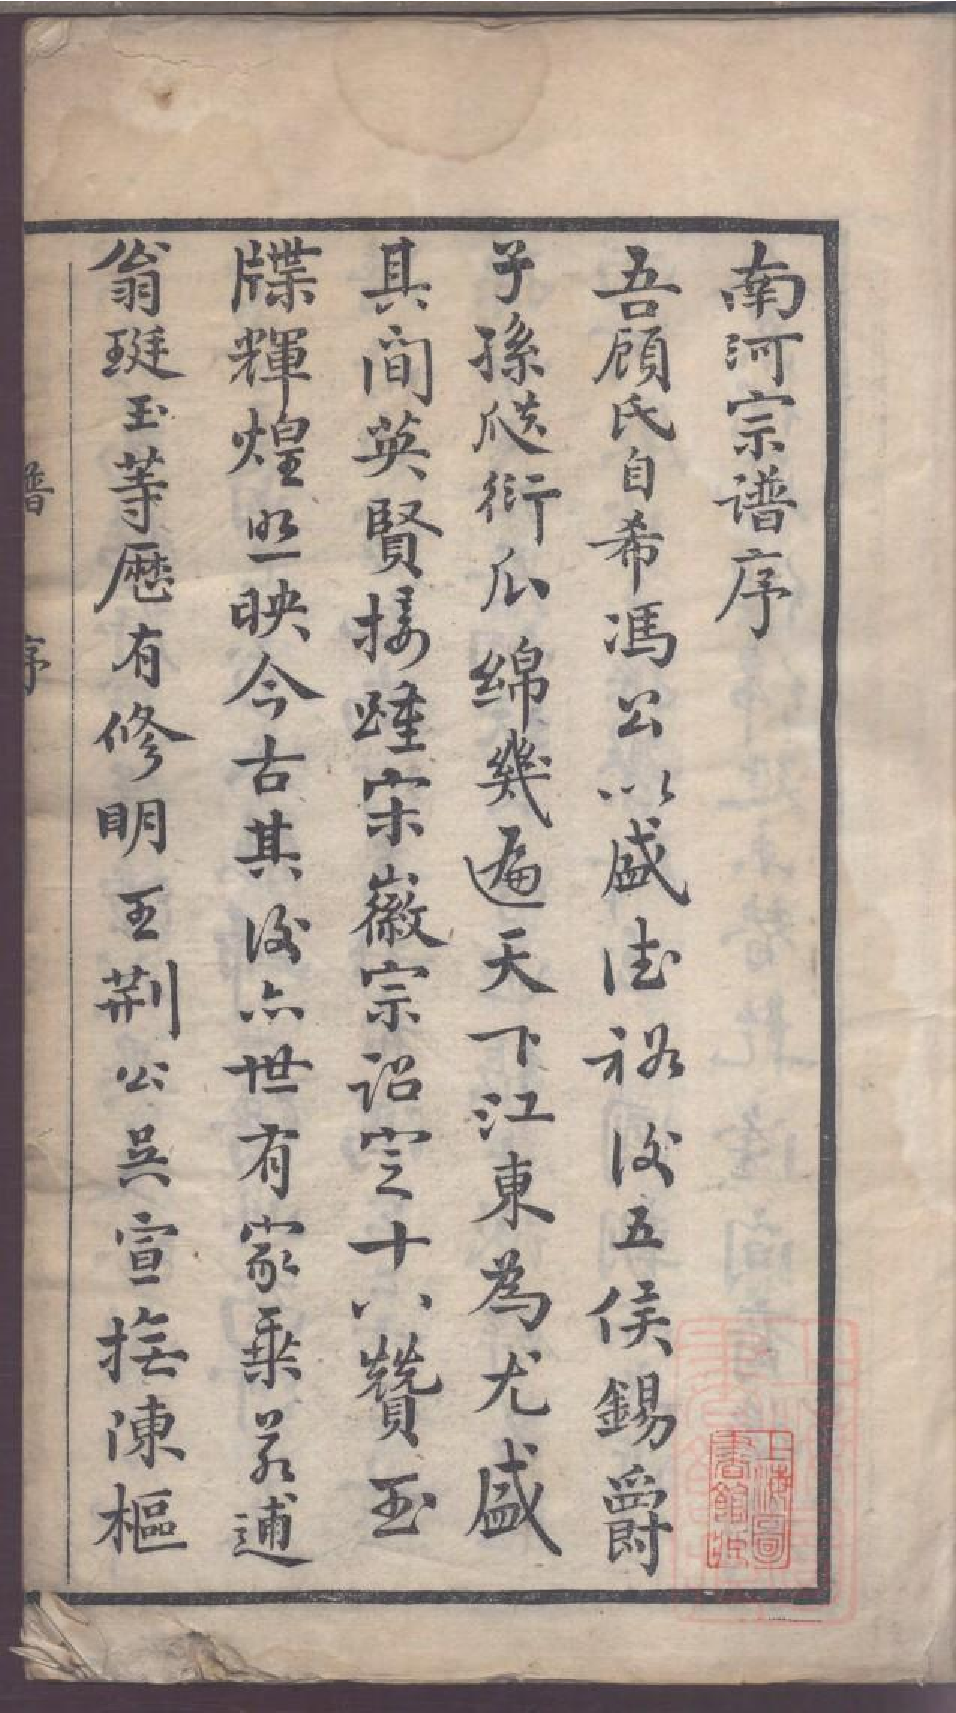 南河宗譜序
吾顧氏自希馮公以盛德裕後五侯錫爵
子孫瓞衍瓜綿幾遍天下江東為尤盛
其間英賢接踵宋徽宗詔定十八贊玉
牒輝煌照映今古其後亦世有家乘若逋
翁珽玉等歷有修明王荊公吳宣撫陳樞
譜序
上海圖書館藏